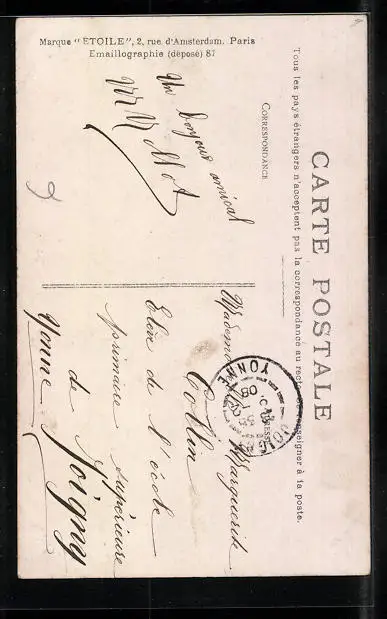 Marque "ETOILE", 2, rue d'Amsterdam, Paris
Emaillographie (déposé) 87
CARTE POSTALE
Tous les pays étrangers n'acceptent pas la correspondance au recto se renseigner à la poste.
CORRESPONDANCE
ADRESSE
Un bonjour amical
YONNE
Mademoiselle Marguerite
Collin
Elève de l'école
primaire supérieure
de Joigny
Yonne